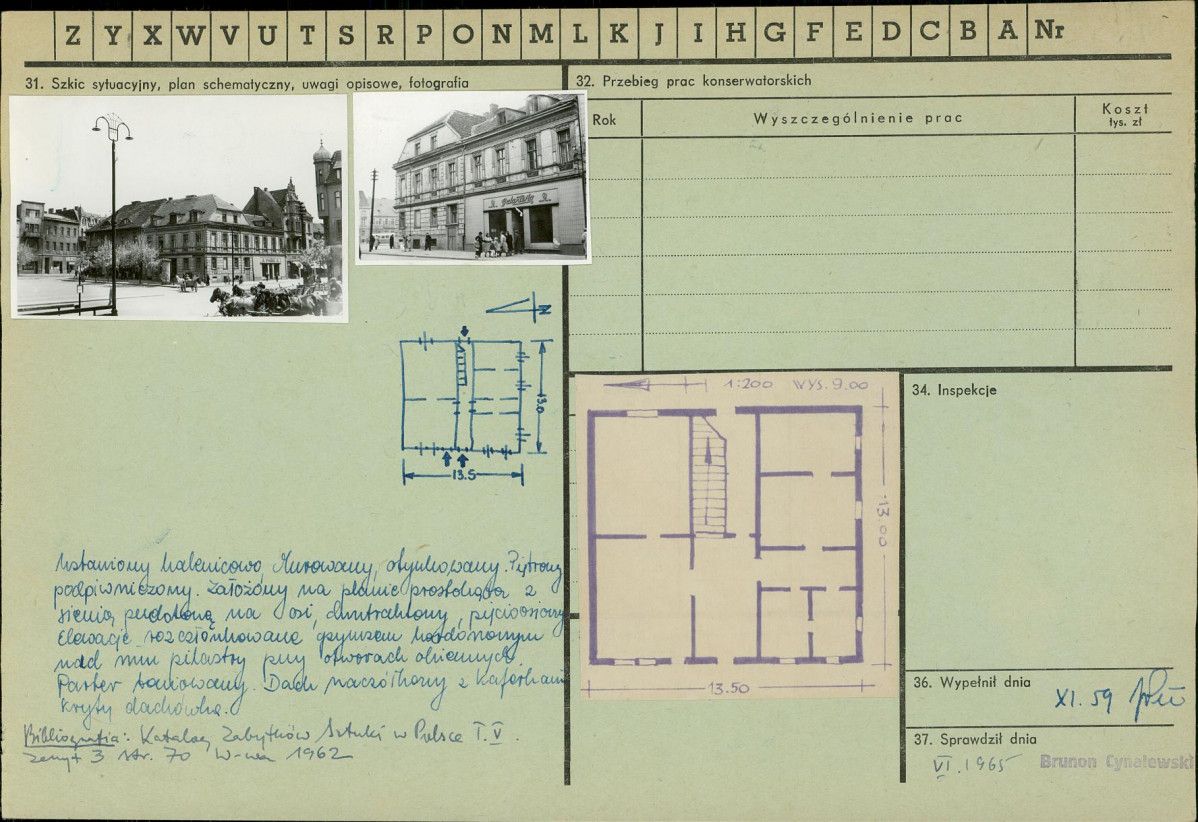 Z Y X W V U T S R P O N M L K J I H G F E D C B A Nr
31. Szkic sytuacyjny, plan schematyczny, uwagi opisowe, fotografia
32. Przebieg prac konserwatorskich
Rok
Wyszczególnienie prac
Koszt
tys. zł
N
13.0
13.5
1:200 WYS. 9.00
13.00
13.50
34. Inspekcje
Murowany, otynkowany. Piętrowy
podpiwniczony. Założony na planie prostokąta z
sienią na osi, dwutraktowy, pięcioosiowy
Elewacje rozczłonkowane gzymsem kordonowym
nad nim pilastry przy otworach okiennych.
Parter boniowany. Dach naczółkowy z kaferkami
kryty dachówką.
Bibliografia: Katalog Zabytków Sztuki w Polsce T. V.
zeszyt 3 str. 70 W-wa 1962
36. Wypełnił dnia
XI. 59
37. Sprawdził dnia
VI. 1965
Brunon Cynalewski